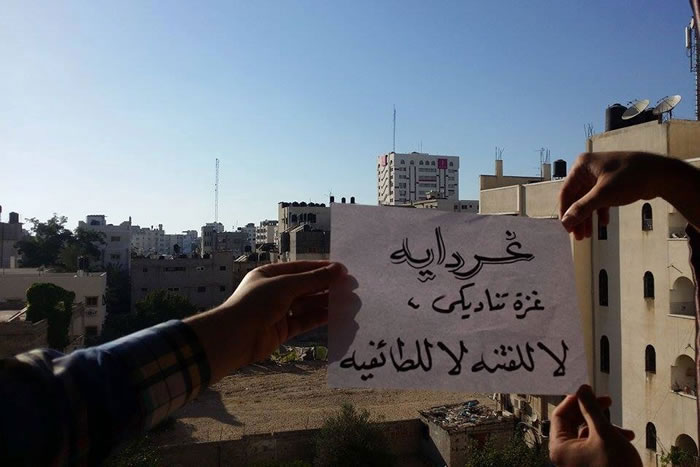 غرداية
غزة تناديكي ،
لا للفتنه لا للطائفيه